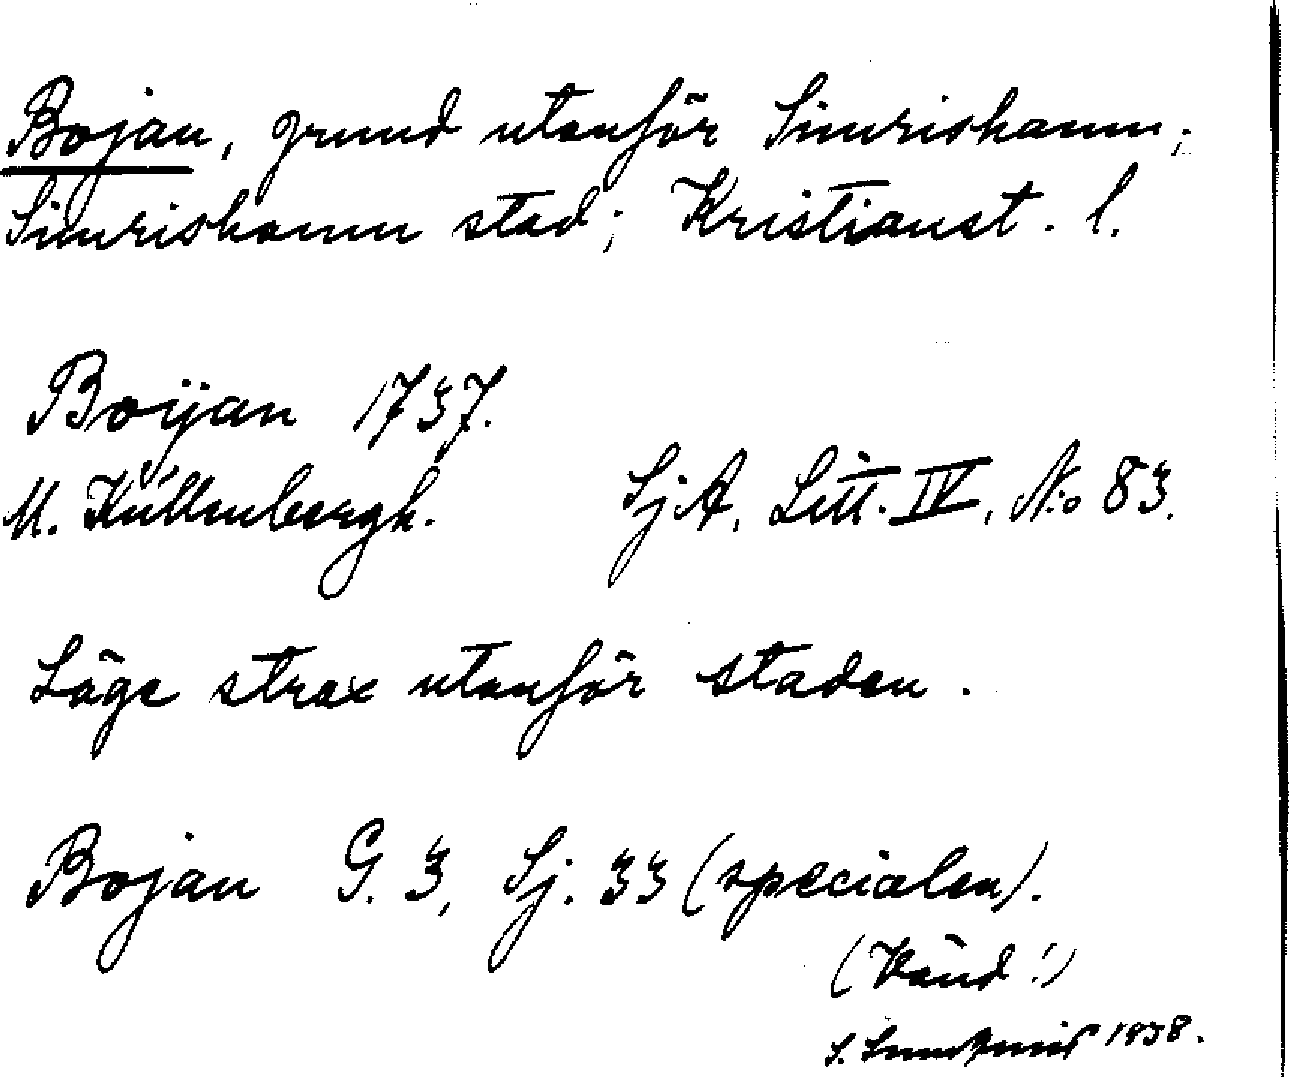 Bojan, grund utanför Simrishamn;
Simrishamn stad; Kristianst. l.
Boijan 1737.
M. Küllenbergh. SjA, Litt. IV, No 83.
Läge strax utanför staden.
Bojan G. 3, Sj. 33 (specialen).
(Vänd!)
S. 1938.